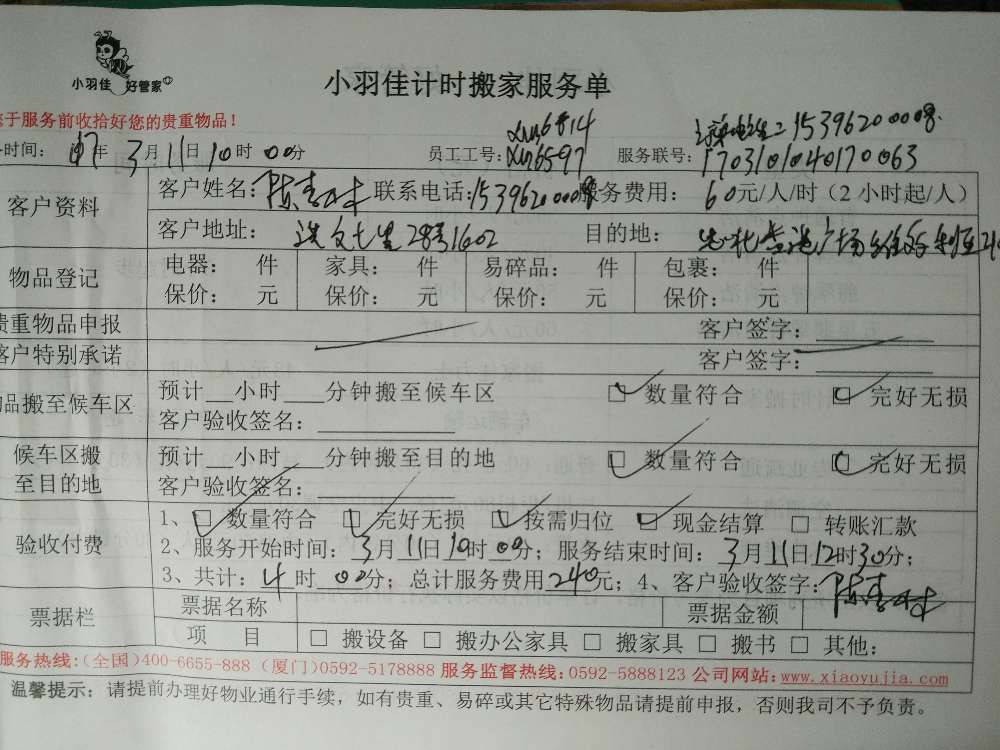 小羽佳 好管家
小羽佳计时搬家服务单
于服务前收拾好您的贵重物品！
15396200008
时间： 17年 3月 11日 10时 00分 员工工号： 服务联号：1703101040170063
客户资料 客户姓名： 联系电话：15396200008 服务费用： 60元/人/时（2小时起/人）
客户地址： 28号1602 目的地：
物品登记 电器： 件 家具： 件 易碎品： 件 包裹： 件
保价： 元 保价： 元 保价： 元 保价： 元
贵重物品申报 客户签字：
客户特别承诺 客户签字：
品搬至候车区 预计__小时____分钟搬至候车区 ☑ 数量符合 ☑ 完好无损
客户验收签名：
候车区搬至目的地 预计__小时____分钟搬至目的地 ☑ 数量符合 ☑ 完好无损
客户验收签名：
验收付费 1、☑ 数量符合 ☑ 完好无损 ☑ 按需归位 ☑ 现金结算 □ 转账汇款
2、服务开始时间：3月11日10时00分；服务结束时间：3月11日12时30分；
3、共计：4时00分；总计服务费用240元；4、客户验收签字：
票据栏 票据名称 票据金额
项 目 □ 搬设备 □ 搬办公家具 □ 搬家具 □ 搬书 □ 其他：
服务热线：（全国）400-6655-888（厦门）0592-5178888 服务监督热线：0592-5888123 公司网站：www.xiaoyujia.com
温馨提示：请提前办理好物业通行手续，如有贵重、易碎或其它特殊物品请提前申报，否则我司不予负责。